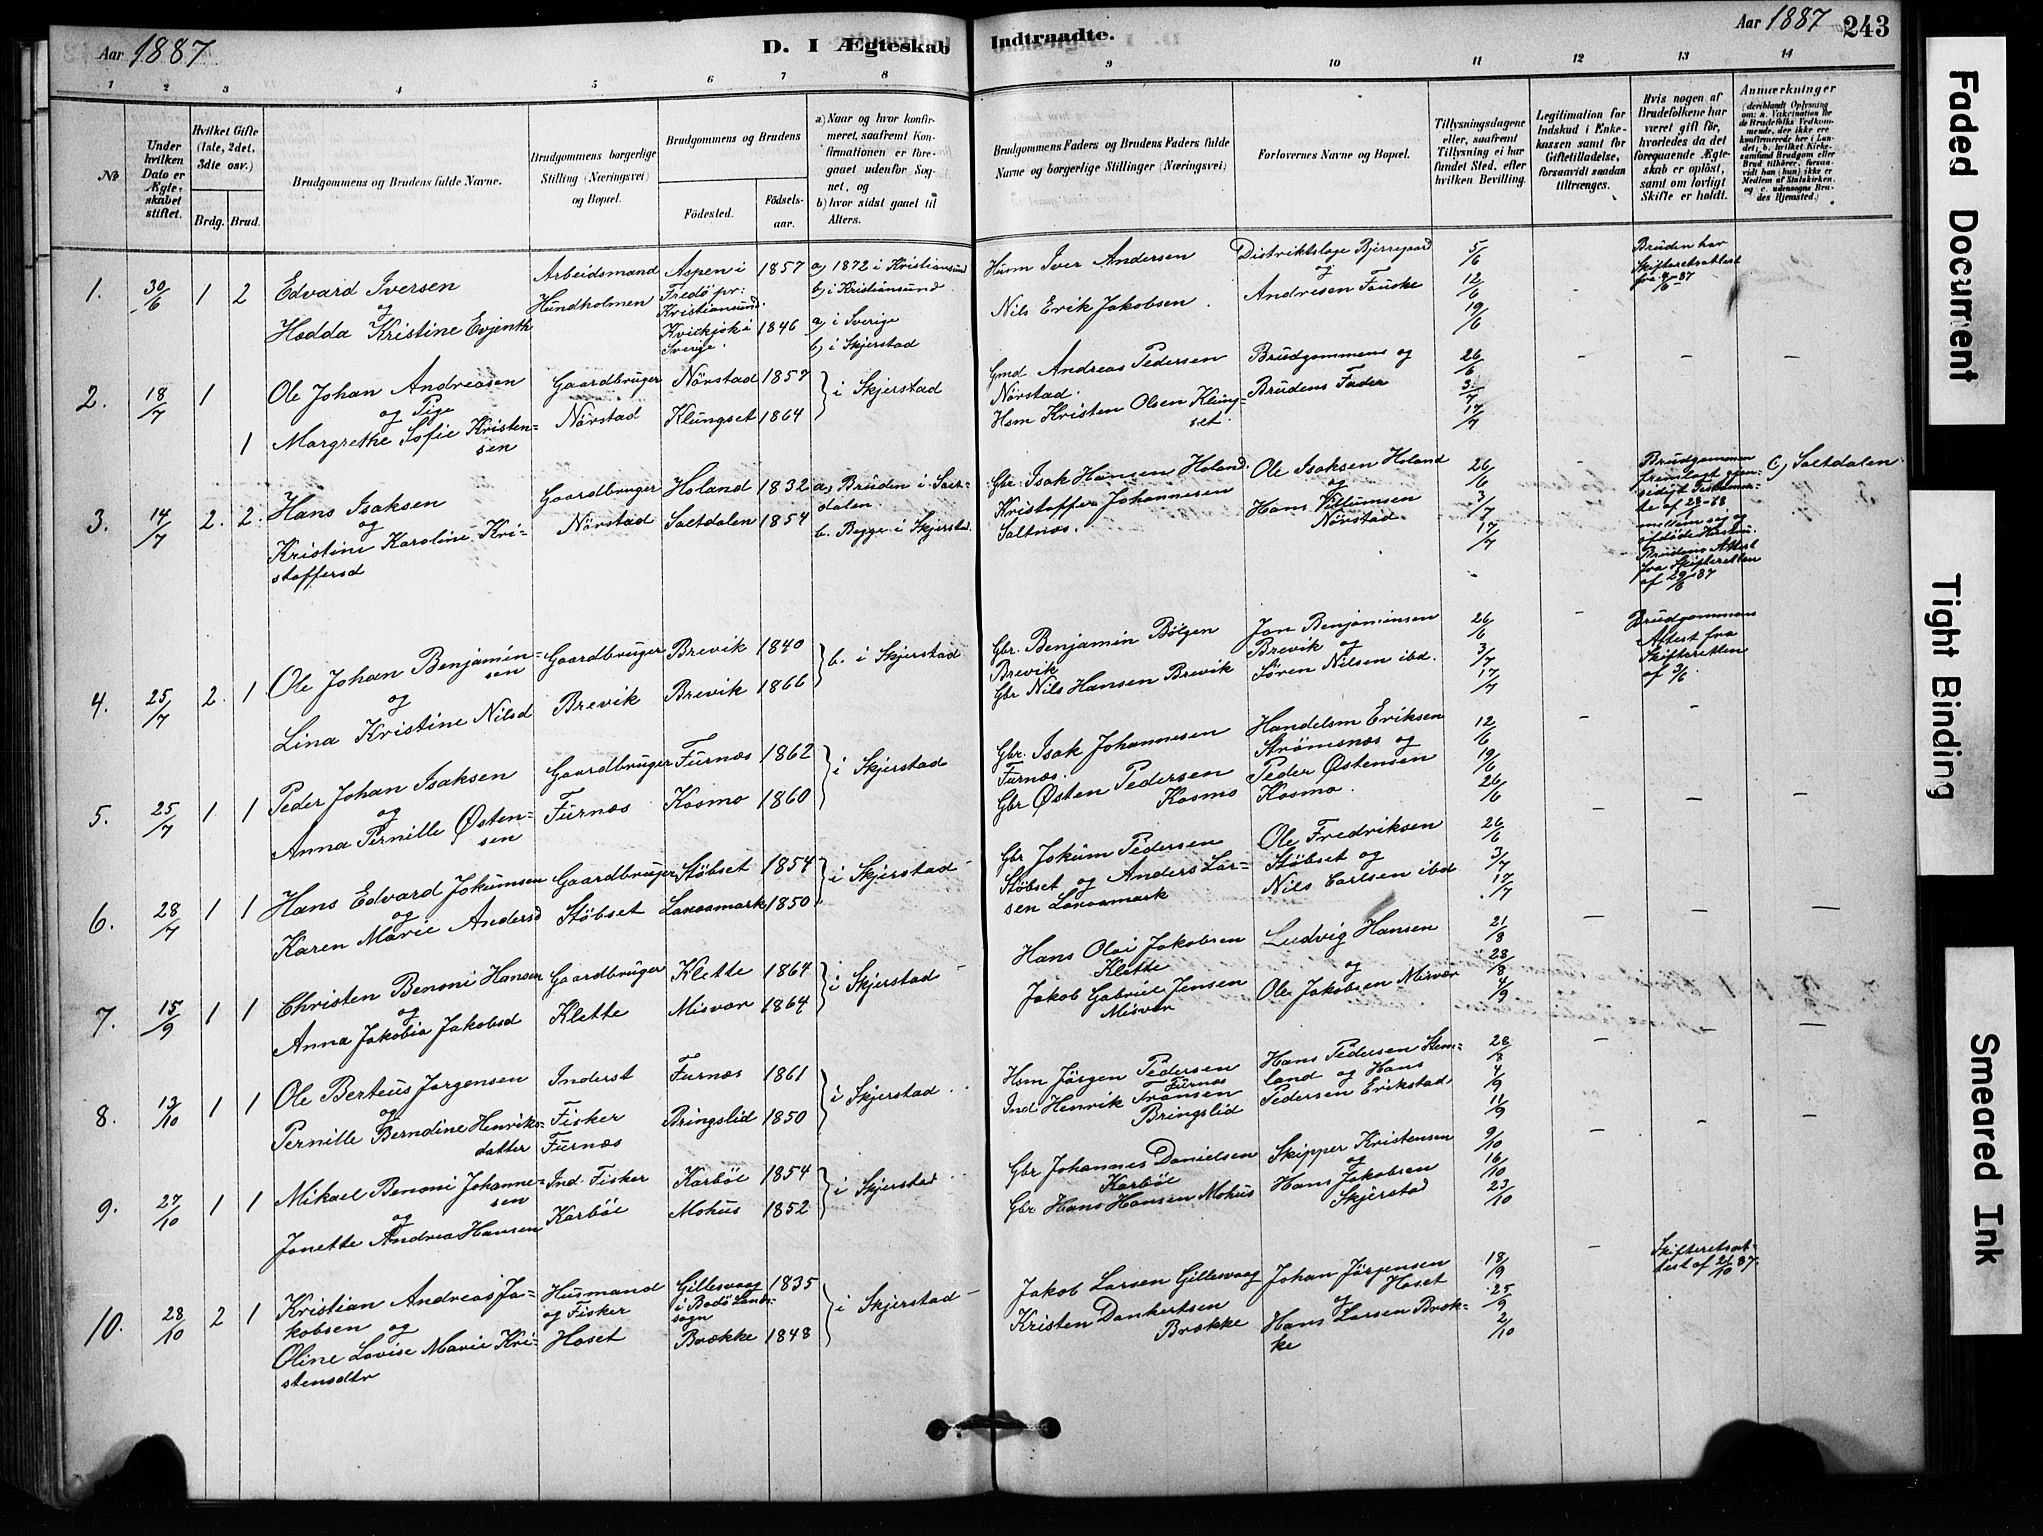 Aar 1887.
D. I Ægteskab Indtraadte.
Aar 1887
243
1 2 3 4 5 6 7 8 9 10 11 12 13 14
No
Under hvilken Dato er Ægteskabet stiftet.
Hvilket Gifte (1ste, 2det, 3die osv.)
Brdg. Brud.
Brudgommens og Brudens fulde Navne.
Brudgommens borgerlige Stilling (Næringsvei) og Bopæl.
Brudgommens og Brudens
Fødested.
Fødselsaar.
a) Naar og hvor konfirmeret, saafremt Konfirmationen er foregaaet udenfor Sognet, og
b) hvor sidst gaaet til Alters.
Brudgommens Faders og Brudens Faders fulde Navne og borgerlige Stillinger (Næringsvei)
Forlovernes Navne og Bopæl.
Tillysningsdagene eller, saafremt Tillysning ei har fundet Sted, efter hvilken Bevilling.
Legitimation for Indskud i Enkekassen samt for Giftetilladelse, forsaavidt saadan tiltrænges.
Hvis nogen af Brudefolkene har været gift før, hvorledes da det foregaaende Ægteskab er opløst, samt om lovligt Skifte er holdt.
Anmærkninger
(deriblandt Oplysning om: a. Vakcination for de Brudefolks Vedkommende, der ikke ere konfirmerede her i Landet; b. hvilket Kirkesamfund Brudgom eller Brud tilhører, forsaavidt han (hun) ikke er Medlem af Statskirken, og c. udensogns Brudes Hjemsted.)
1. 30/6 1 2
Edvard Iversen
og
Hedda Kristine Evjenth
Arbeidsmand
Hundholmen
Aspen i Fredö pr: Kristiansund. 1857
Kvickjok i Sverige. 1846
a) 1872 i Kristiansund
b) i Kristiansund.
a) i Sverige
b) i Skjerstad
Husm Iver Andersen
Nils Erik Jakobsen.
Distriktslæge Bjerregaard
og
Andresen Fauske
5/6
12/6
19/6
Bruden har
Skifteretsattest
2. 18/7 1 1
Ole Johan Andreasen
og Pige
Margrethe Sofie Kristen-
sen
Gaardbruger
Nörstad
Nörstad 1857
Klungset 1864
i Skjerstad
Gmd Andreas Pedersen
Nörstad.
Hsm Kristen Olsen Klung-
set.
Brudgommens og
Brudens Fader
26/6
3/7
17/7
3. 14/7 2. 2.
Hans Isaksen
og
Kristine Karoline Kri-
stoffersd
Gaardbruger
Nörstad
Holand 1832
Saltdalen 1854
a, Bruden i Salt-
dalen
b. Begge i Skjerstad.
Gbr. Isak Hansen Holand.
Kristoffer Johannesen
Saltnæs.
Ole Isaksen Holand
og
Hans Villumsen
Nörstad
26/6
3/7
17/7
Brudgommen
fremlagt gjen-
sidigt Testamen-
te
mellem sig og
afdøde Hustru.
Brudens Attest
fra Skifteretten
af 29/6 87
c, Saltdalen
4. 25/7 2. 1
Ole Johan Benjamin-
sen
og
Lina Kristine Nilsd
Gaardbruger
Brevik
Brevik 1840
Brevik 1866
b. i Skjerstad
Gbr. Benjamin Bölgen
Brevik
Gbr Nils Hansen Brevik
Jon Benjaminsen
Brevik og
Sören Nilsen ibd.
26/6
3/7
17/7
Brudgommens
Attest fra
Skifteretten
af 3/6.
5. 25/7 1 1
Peder Johan Isaksen
og
Anna Pernille Østen-
sen
Gaardbruger
Furnæs
Furnæs 1862
Kosmo 1860
i Skjerstad
Gbr. Isak Johannesen
Furnæs.
Gbr Østen Pedersen
Kosmo
Handelsm Eriksen
Strömsnæs og
Peder Østensen
Kosmo.
12/6
19/6
26/6
6. 28/7 1 1
Hans Edvard Jokumsen
og
Karen Marie Andersd
Gaardbruger
Stöbset
Stöbset 1854
Laxaamark 1850
i Skjerstad
Gbr Jokum Pedersen
Stöbset og Anders Lar-
sen Laxaamark
Ole Fredriksen
Stöbset og
Nils Carlsen ibd
26/6
3/7
17/7
7. 15/9 1 1
Christen Benoni Hansen
og
Anna Jakobia Jakobsd
Gaardbruger
Klette
Klette 1864
Misvær 1864
i Skjerstad
Hans Olai Jakobsen
Klette
Jakob Gabriel Jensen
Misvær
Ludvig Hansen
og
Ole Jakobsen Misvær
21/8
28/8
4/9
8. 13/10 1 1
Ole Berteus Jørgensen
og
Pernille Berndine Henriks-
datter
Inderst
Fisker
Furnæs
Furnæs 1861
Bringslid 1850
i Skjerstad
Hsm Jörgen Pedersen
Furnæs
Ind Henrik Fransen
Bringslid
Hans Pedersen Stem-
land og Hans
Pedersen Erikstad
28/8
4/9
11/9
9. 27/10 1 1
Mikael Benoni Johanne-
sen
og
Jonette Andrea Hansen
Ind. Fisker
Karböl
Karböl 1854
Mohus 1852
i Skjerstad
Gbr Johannes Danielsen
Karböl
Gbr Hans Hansen Mohus
Skipper Kristensen
og
Hans Jakobsen
Skjerstad
9/10
16/10
23/10
10. 28/10 2 1
Kristian Andreas Ja-
kobsen og
Oline Lovise Marie Kri-
stensdtr
Husmand
og Fisker
Hoset
Gillesvaag
i Bodö Lands-
sogn 1835
Brække 1848
i Skjerstad
Jakob Larsen Gillesvaag
Kristen Dankertsen
Brække
Johan Jörgensen
Hoset
og
Hans Larsen Bræk-
ke
18/9
25/9
2/10
Skifteretsat-
test af 21/10 87.
Faded Document
Tight Binding
Smeared Ink